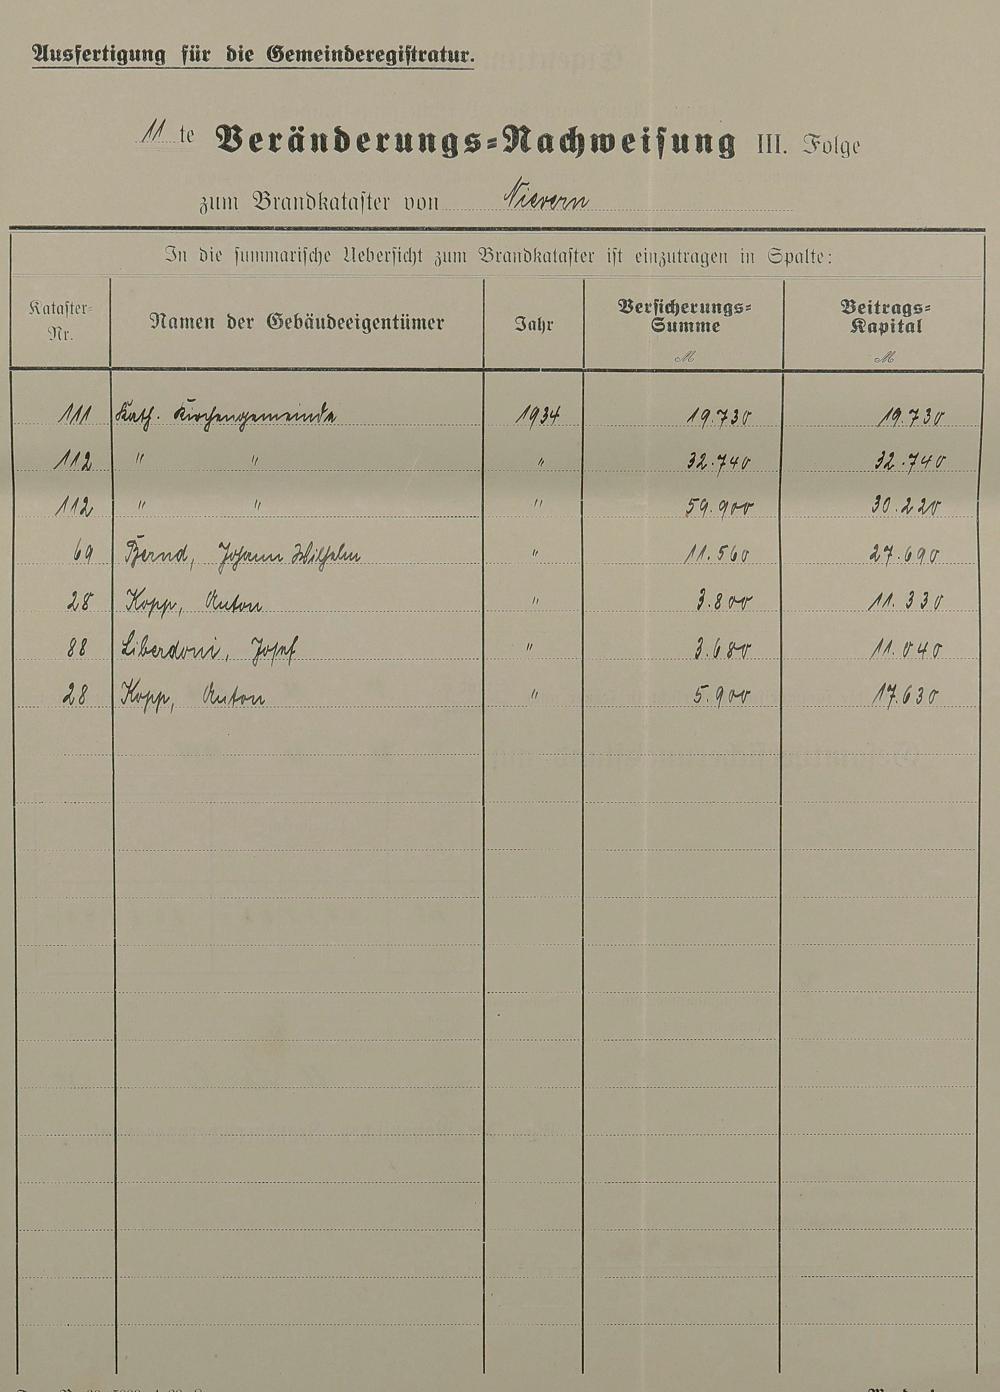 Ausfertigung für die Gemeinderegistratur.
11te Veränderungs-Nachweisung III. Folge
zum Brandkataster von Nievern
In die summarische Uebersicht zum Brandkataster ist einzutragen in Spalte:
Kataster-Nr. Namen der Gebäudeeigentümer Jahr Versicherungs-Summe M Beitrags-Kapital M
111 Kath. Kirchengemeinde 1934 19.730 19.730
112 " " " 32.740 32.740
112 " " " 59.900 30.220
69 Bernd, Johann Wilhelm " 11.560 27.690
28 Kopp, Anton " 3.800 11.330
88 Liberdoni, Josef " 3.680 11.040
28 Kopp, Anton " 5.900 17.630